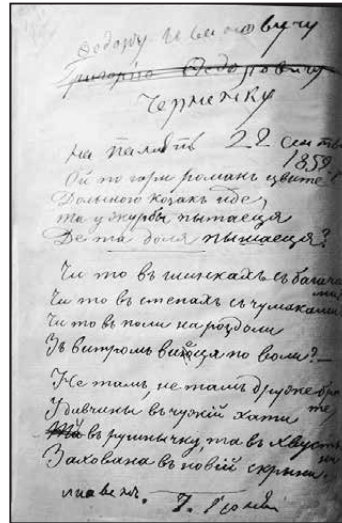 Федору Ивановичу
Григорію Федоровичу
Черненку
на память 22 сентя
1859
Ой по гори романъ цвите
Долыною козакъ иде,
Та у журбы пытаеця
Де та доля пышаеця?
Чи то въ шинкахъ съ багача
ми
Чи то въ степахъ съ чумаками
Чи то въ поли на роздоли
Зъ витромъ вьеця по воли? —
Не тамъ, не тамъ друже бра
те
У дивчины въ чужій хати
въ рушнычку, та въ хусты
ни
Захована въ новій скрыни.
Т.